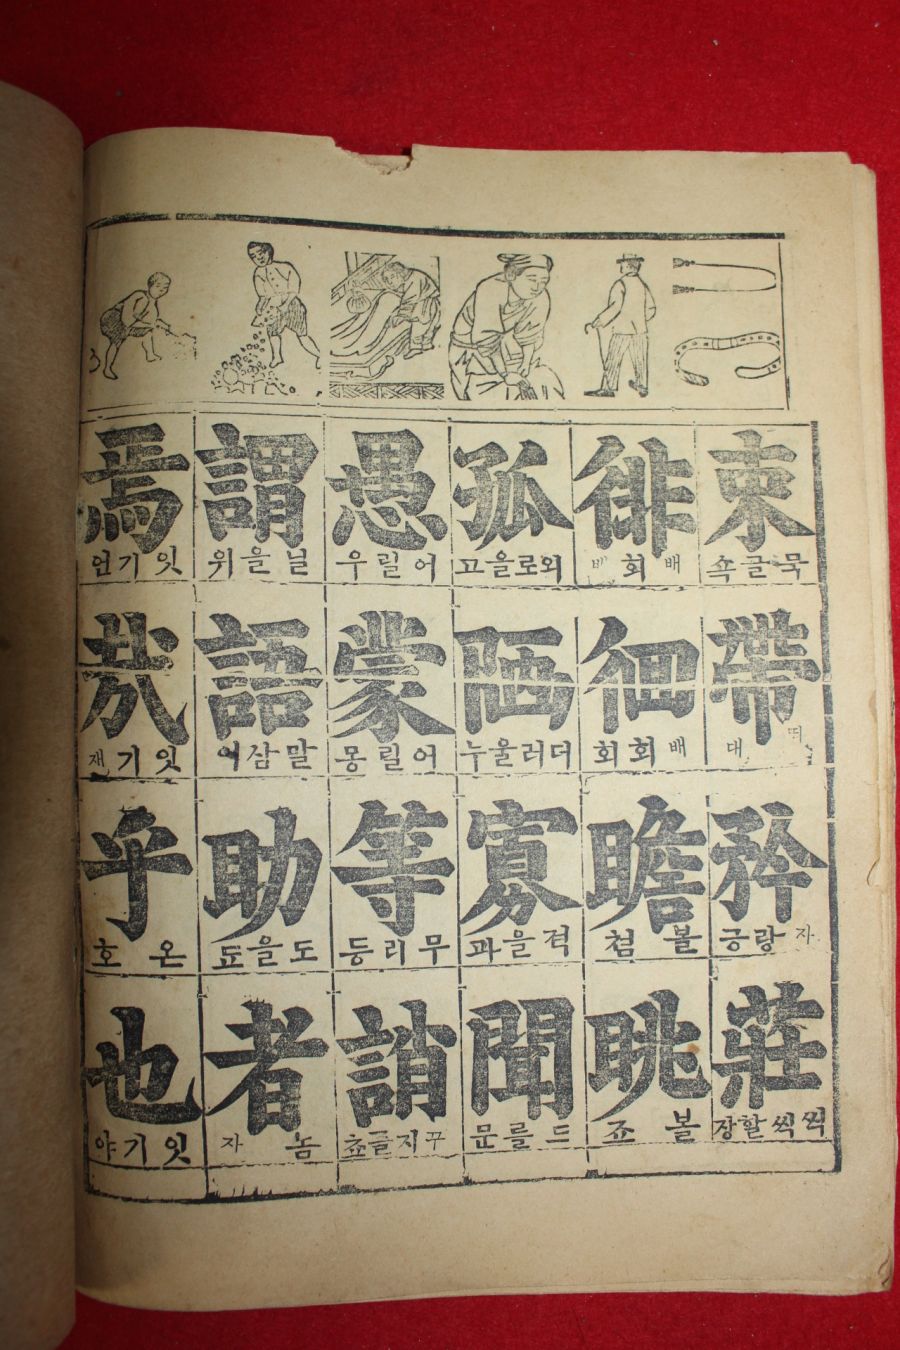 束
묵글쇽
帶
띄대
矜
자랑긍
莊
씩씩할장
徘
배회배
徊
배회회
瞻
볼쳠
眺
볼죠
孤
외로을고
陋
더러울누
寡
젹을과
聞
드를문
愚
어릴우
蒙
어릴몽
等
무리등
誚
꾸지즐쵸
謂
닐을위
語
말삼어
助
도을됴
者
놈자
焉
잇기언
哉
잇기재
乎
온호
也
잇기야